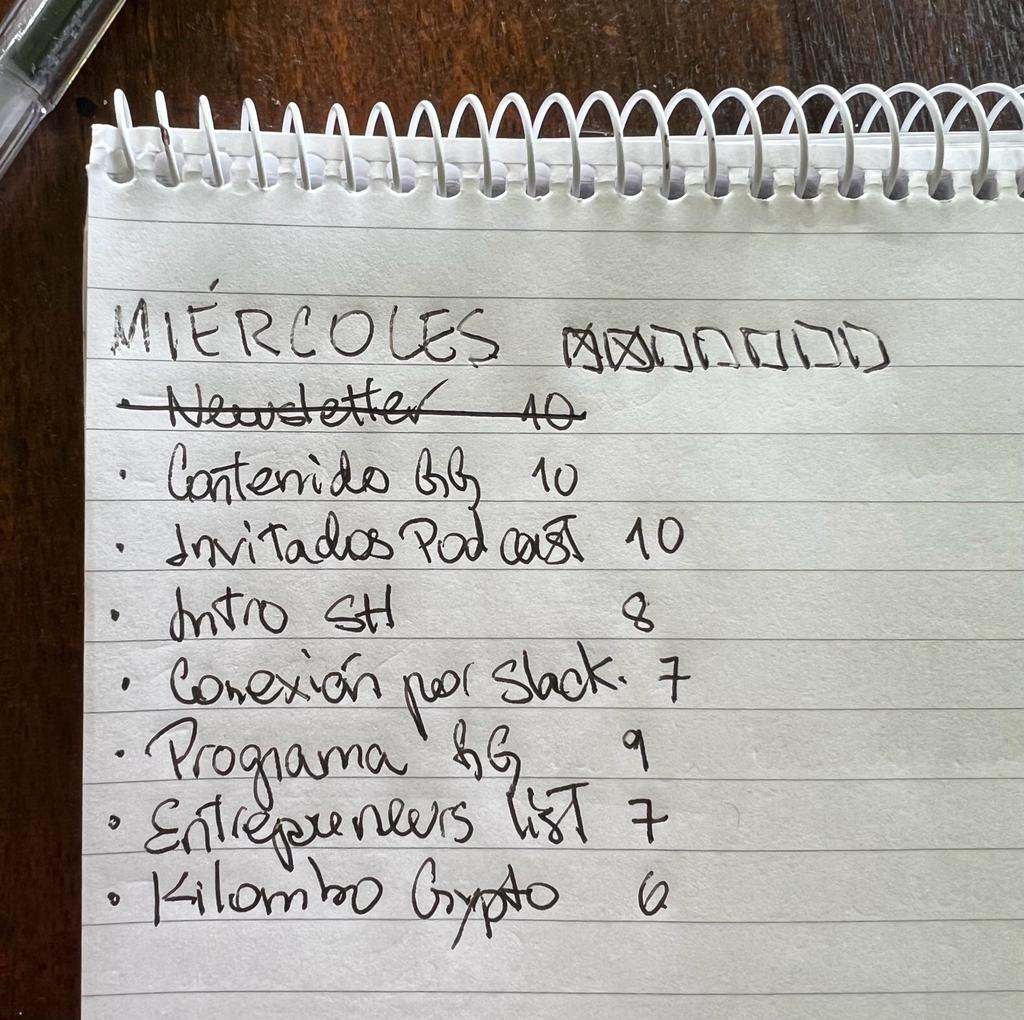 MIÉRCOLES
Newsletter 10
· Contenido BG 10
· Invitados Podcast 10
· Intro SH 8
· Conexión por Slack. 7
· Programa BG 9
· Entrepreneurs list 7
· Kilombo Crypto 6